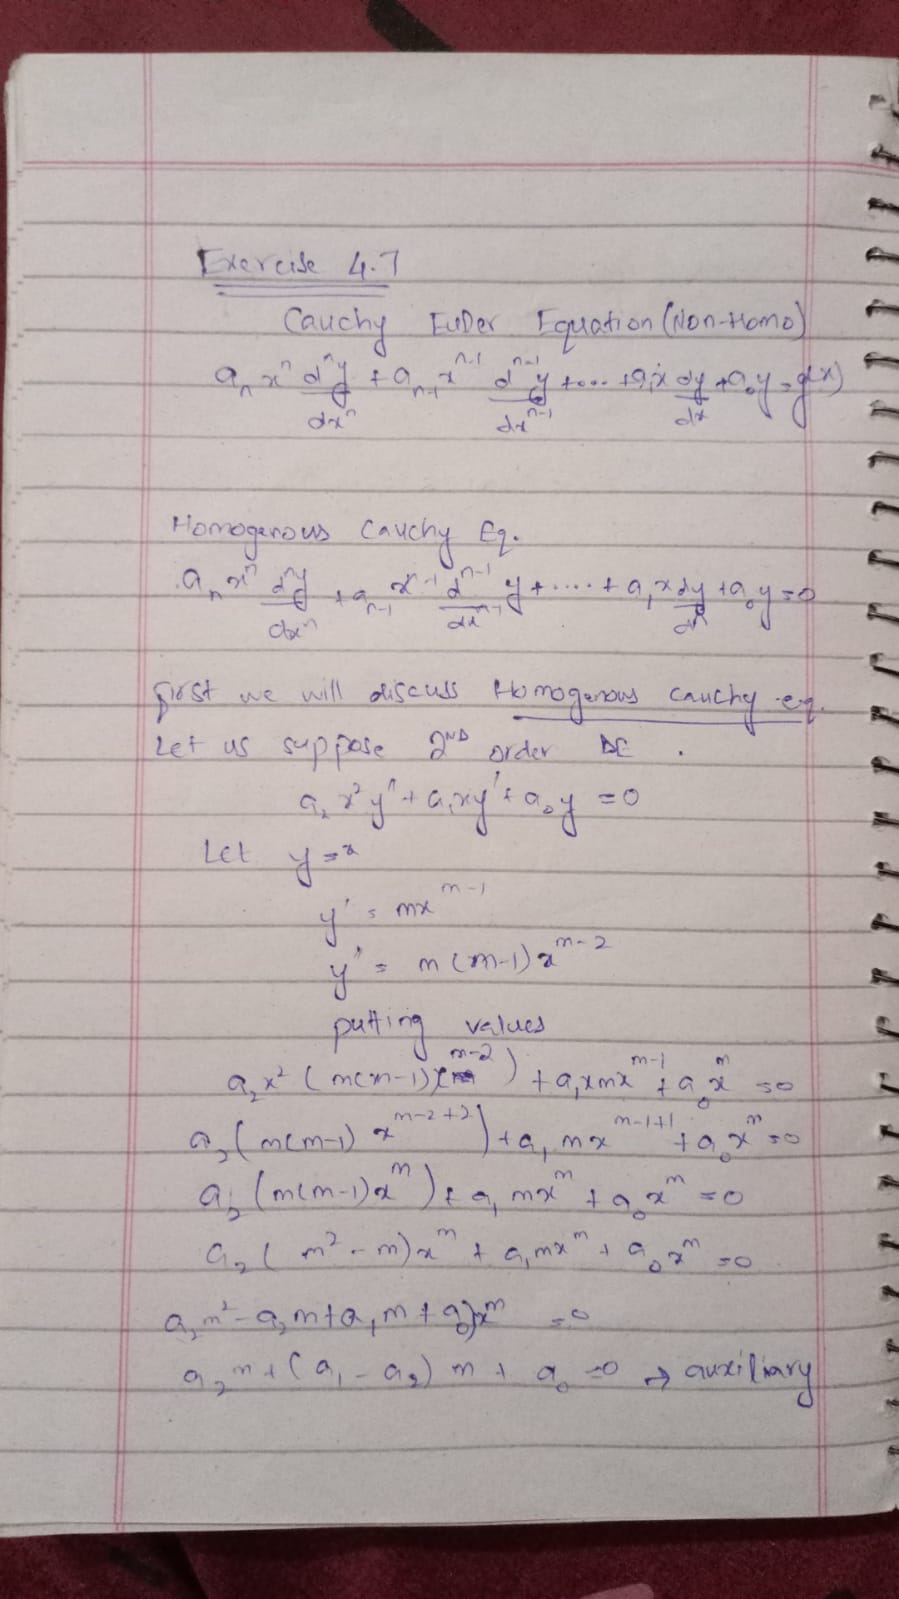 Exercise 4.7
Cauchy Euler Equation (Non-Homo)
aₙ xⁿ dⁿy/dxⁿ + aₙ₋₁ xⁿ⁻¹ dⁿ⁻¹y/dxⁿ⁻¹ + .... + a₁x dy/dx + a₀y = g(x)
Homogenous Cauchy Eq.
aₙ xⁿ dⁿy/dxⁿ + aₙ₋₁ xⁿ⁻¹ dⁿ⁻¹/dxⁿ⁻¹ y + ..... + a₁x dy/dx + a₀y = 0
first we will discuss Homogenous Cauchy eq.
Let us suppose 2ND order DE .
a₂ x² y'' + a₁xy' + a₀y = 0
Let y = x
y' = mx^(m-1)
y' = m(m-1)x^(m-2)
putting values
a₂x² (m(m-1)x^(m-2)) + a₁xmx^(m-1) + a₀x^m = 0
a₂(m(m-1) x^(m-2+2)) + a₁ mx^(m-1+1) + a₀x^m = 0
a₂(m(m-1)x^m) + a₁ mx^m + a₀x^m = 0
a₂( m² - m)x^m + a₁mx^m + a₀x^m = 0
a₂m² - a₂m + a₁m + a₀)x^m = 0
a₂m + (a₁ - a₂) m + a₀ = 0 → auxiliary